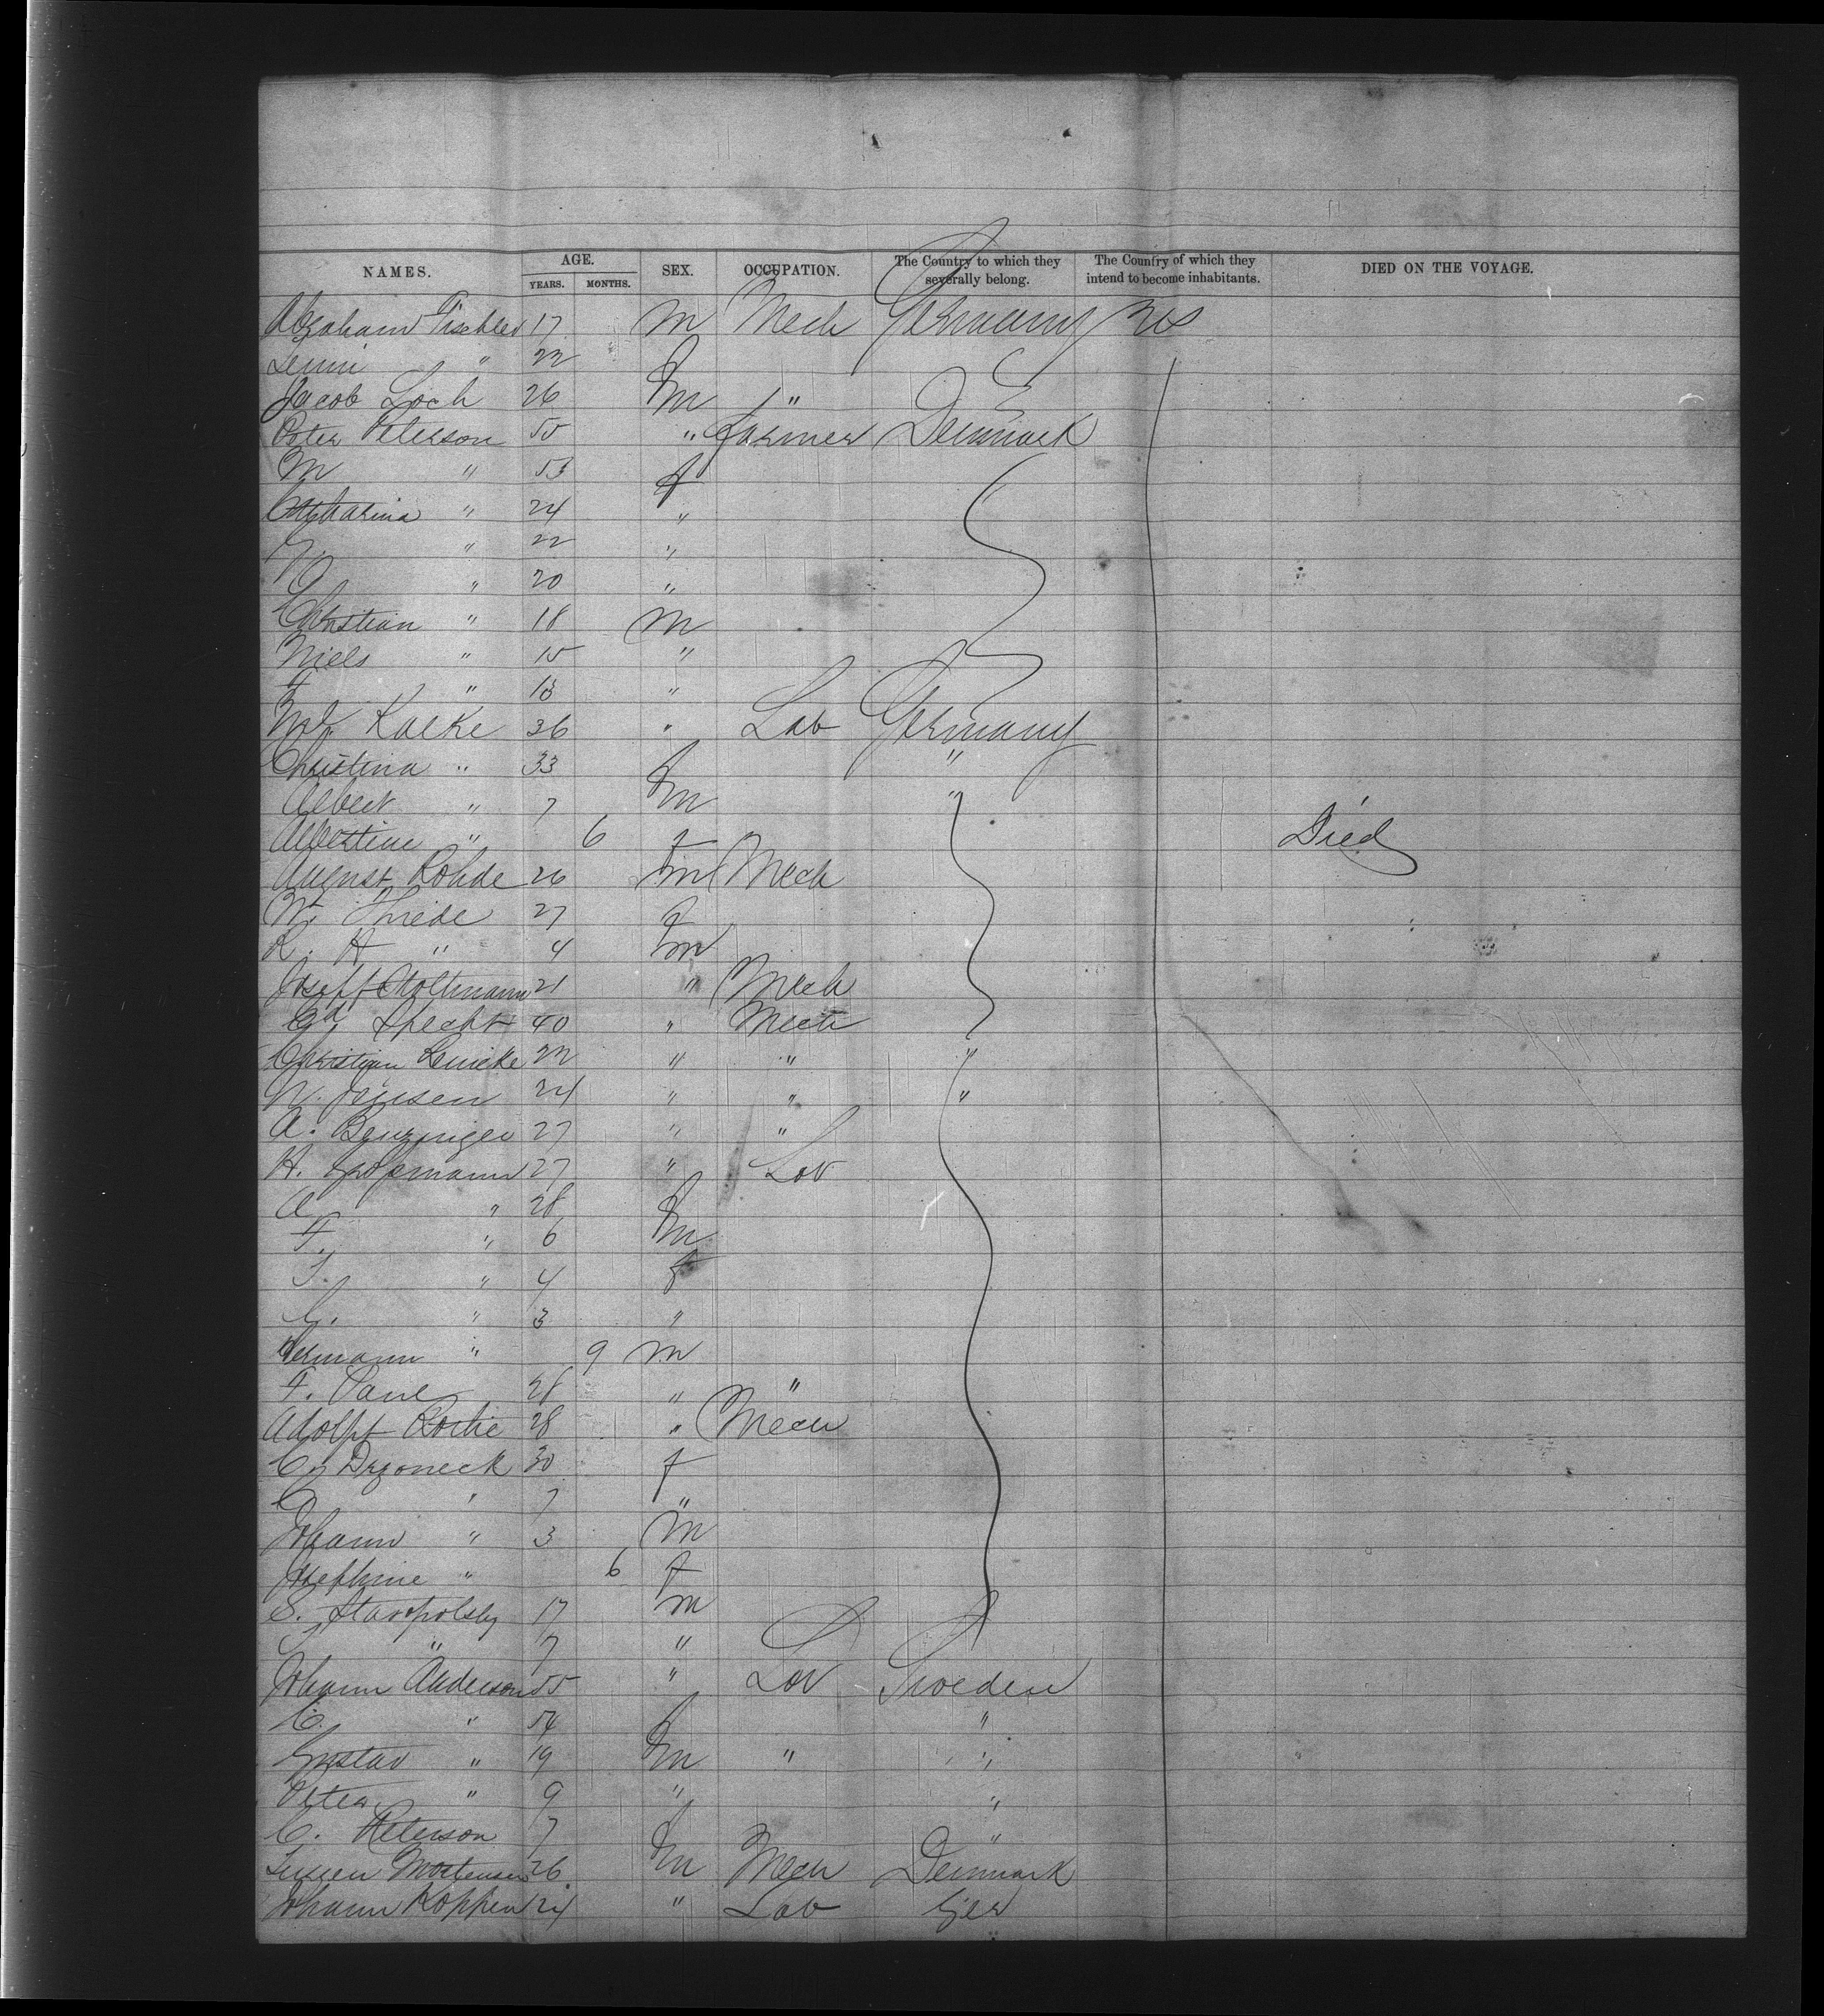 NAMES. AGE. SEX. OCCUPATION. The Country to which they severally belong. The Country of which they intend to become inhabitants. DIED ON THE VOYAGE.
YEARS. MONTHS.
Abraham Tischler 17 m Mech Germany US
" 22 f
Jacob Loch 26 m "
Peter Peterson 50 " Farmer Denmark
M " 53 f
Catharina " 24 "
" 22 "
" 20 "
Christian " 18 m
Niels " 15 "
" 13 "
Kaeke 36 " Lab Germany
Christina " 33 f "
Albert " 7 m "
Albertine " 6 f Died
August Rohde 26 m Mech
W. Thiede 27 f
R. H. " 4 m
Joseff Stoltmann 21 " Mech
Ed. Specht 40 " Mech
Christian Lemcke 22 " " "
N. Jensen 24 " " "
A. Benzinger 27 " "
H. 27 " Lab
A. " 28 f
F. " 6 m
" 4 f
C. " 3 "
Hermann " 9 m
F. Pane 28 " "
Adolph 28 " Mech
C. Drzoneck 30 f
C. " 7 "
Johann " 3 m
Josephine " 6 f
S. 17 m
" 7 "
Johann Anderson 55 " Lab Sweden
C. " 54 f "
Gustav " 19 m " "
Peter " 9 " "
C. Peterson 7 f "
Mortensen 26 m Mech Denmark
Johann Koppen 24 " Lab Ger